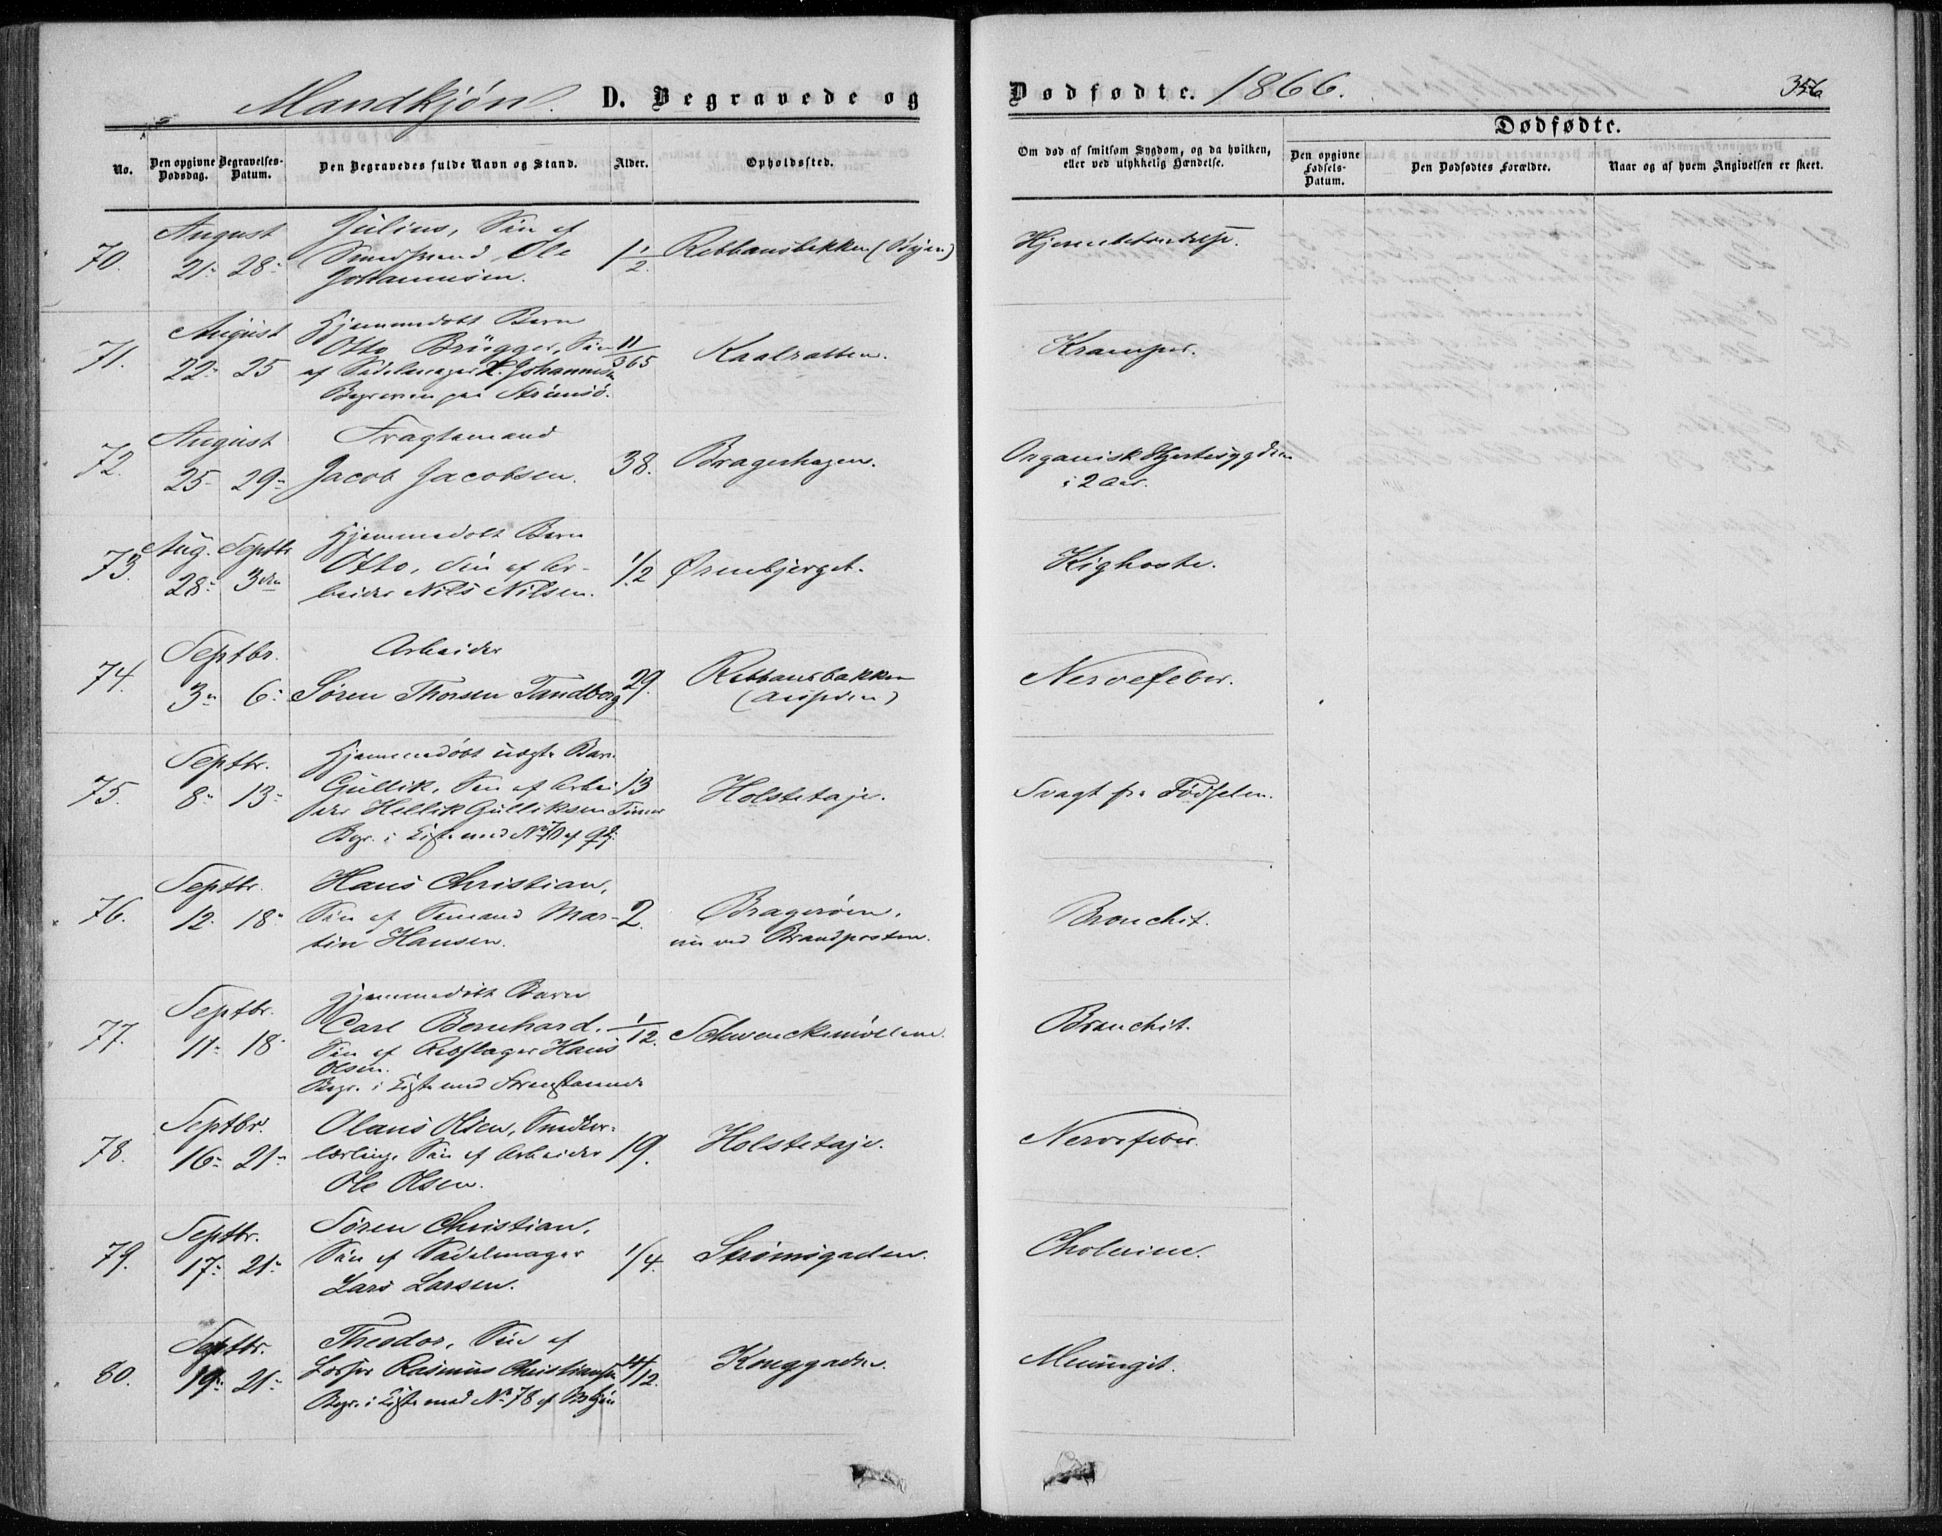 Mandkjøn. D. Begravede og
Dødfødte. 1866. 356
Dødfødte.
No. Den opgivne Dødsdag. Begravelses-Datum. Den Begravedes fulde Navn og Stand. Alder. Opholdssted. Om død af smitsom Sygdom, og da hvilken, eller ved ulykkelig Hændelse. Den opgivne Fødsels-Datum. Den Dødfødtes Forældre. Naar og af hvem Angivelsen er skeet.
August Julius, Søn af
70. 21. 28. Ole 1 1/2 Rebbansbakken (Byen) Hjernebetændelse.
Johannesen.
August Hjemmedøbt Barn
71. 22. 25 Otto Brügger, Søn 11/365 Kramper.
af Sadelmager Johannesen
Begraven paa Strømsø.
August Fragtemand
72. 25 29 Jacob Jacobsen. 38. Bragerhagen. Organisk Hjertesygdom
i 2 Aar.
Aug. Septbr Hjemmedøbt Barn
73. 28 3die Otto, Søn af Ar-
beider Nils Nilsen. 1/2 Ørenbjerget. Kighoste.
Septbr. Arbeider
74. 3 6 Søren Thorsen Tandberg 29. Rebbansbakken Nervefeber.
Septbr. Hjemmedøbt uægte Barn
75. 8 13 Gullik, Søn af Arbei- 13
der Gulliksen Timer Holstetaje. Svagt fra Fødselen.
Begr. i Kiste med No 70 af Qkj.
Septbr. Hans Christian,
76. 12. 18 Søn af Sømand Mar- 2. Bragerøen, Bronchit.
tin Hansen. nu ved Brandposten.
Septbr. Hjemmedøbt Barn
77. 11 18 Carl Bernhard, 1/12. Schwenckemøllene. Bronchit.
Søn af Rebslager Hans
Olsen.
Begr. i Kiste med Forestaaende
Septbr. Olaus Olsen, Snedker-
78. 16 21 lærling, Søn af Arbeider 19. Holstetaje. Nervefeber.
Ole Olsen.
Septbr. Søren Christian,
79. 17 21 Søn af Sadelmager 1/4. Strømsgaden. Cholerine.
Lars Larsen.
Septbr. Theodor, Søn af
80. 19 21 Rasmus Christiansen /12. Konggaden. Meningit.
Begr. i Kiste med No 78 af